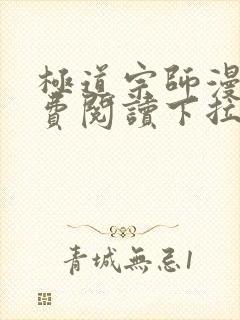 極道宗師漫
費閱讀下拉
青城無忌1